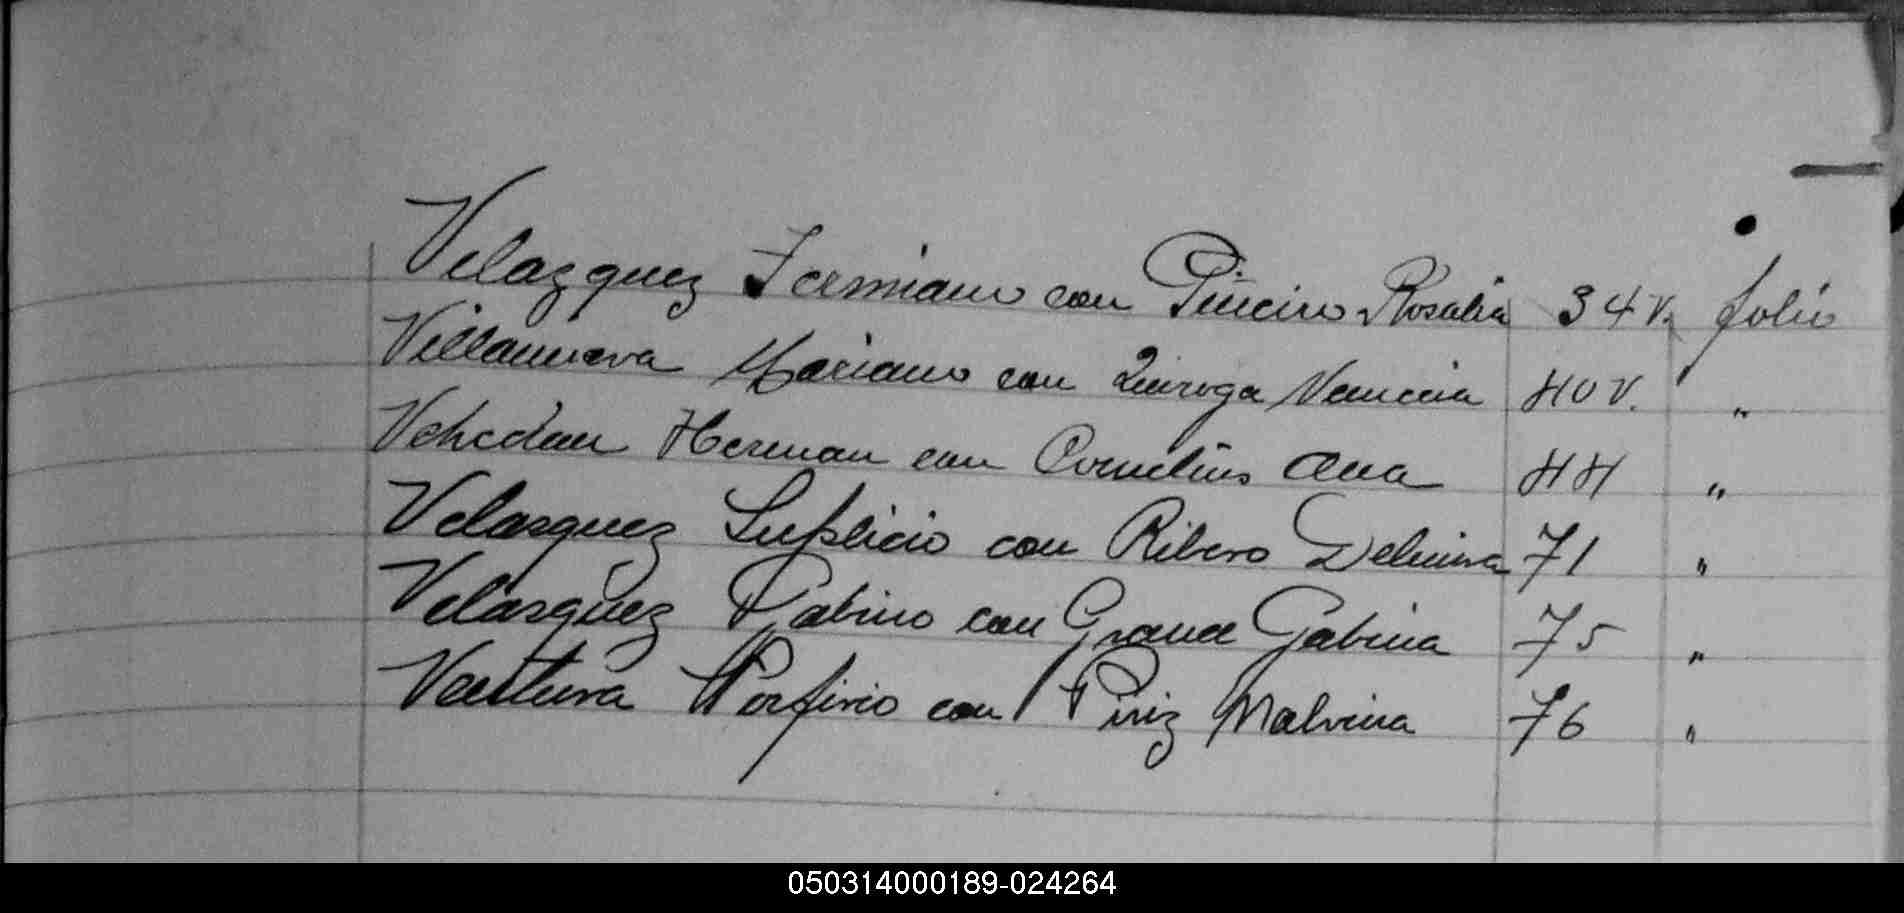 Velazquez Fermiano con Piñeiro Rosalia 34 v. folio
Villanueva Mariano con Quiroga Venicia 40 v. "
Vehedan Herman con Cornelius Ana 44 "
Velasquez Suplicio con Ribero Delmira 71 "
Velasquez Gabino con Grance Gabina 75 "
Ventura Porfirio con Piriz Malvina 76 "
050314000189-024264